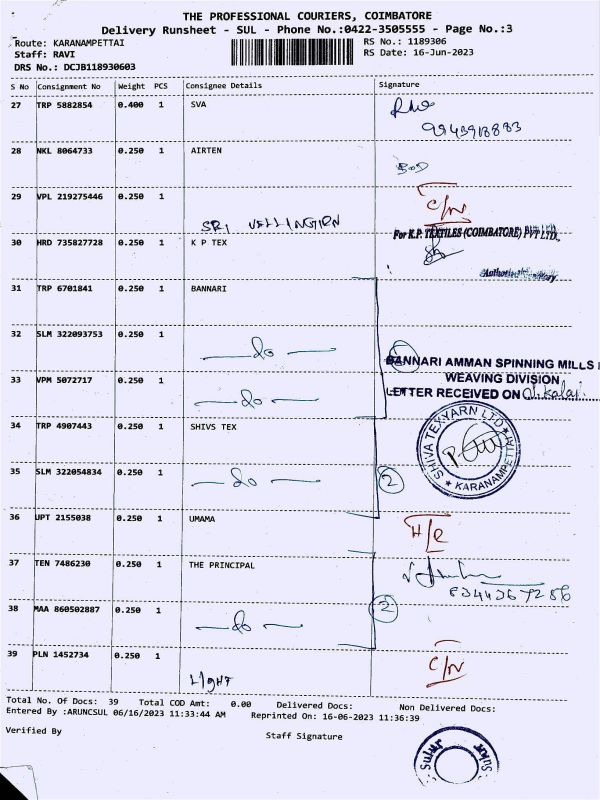 THE PROFESSIONAL COURIERS, COIMBATORE
Delivery Runsheet - SUL - Phone No.:0422-3505555 - Page No.:3
Route: KARANAMPETTAI RS No.: 1189306
Staff: RAVI RS Date: 16-Jun-2023
DRS No.: DCJB118930603
S No Consignment No Weight PCS Consignee Details Signature
27 TRP 5882854 0.400 1 SVA
28 NKL 8064733 0.250 1 AIRTEN
29 VPL 219275446 0.250 1 C/N
SRI VELLINGIRN
For K.P. TEXTILES (COIMBATORE) PVT LTD.,
30 HRD 735827728 0.250 1 K P TEX
31 TRP 6701841 0.250 1 BANNARI
32 SLM 322093753 0.250 1
do
BANNARI AMMAN SPINNING MILLS
33 VPM 5072717 0.250 1 WEAVING DIVISION
do LETTER RECEIVED ON
34 TRP 4907443 0.250 1 SHIVS TEX
SHIVA TEXYARN LTD
KARANAMPETTAI
35 SLM 322054834 0.250 1
do 2
36 UPT 2155038 0.250 1 UMAMA
37 TEN 7486230 0.250 1 THE PRINCIPAL
38 MAA 860502887 0.250 1 2
do
39 PLN 1452734 0.250 1 C/N
Light
Total No. Of Docs: 39 Total COD Amt: 0.00 Delivered Docs: Non Delivered Docs:
Entered By :ARUNCSUL 06/16/2023 11:33:44 AM Reprinted On: 16-06-2023 11:36:39
Verified By Staff Signature
Sulur